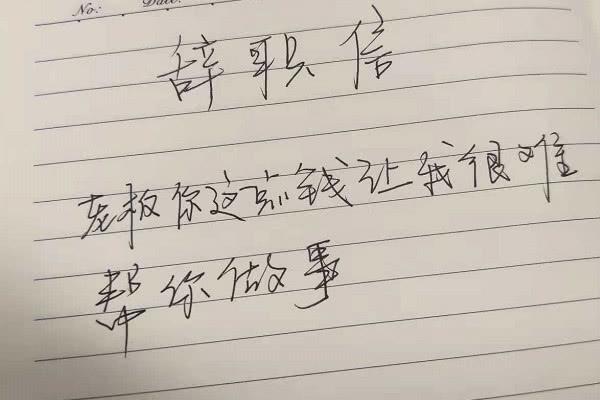 No: Date:
辞职信
老板你这点钱让我很难
帮你做事